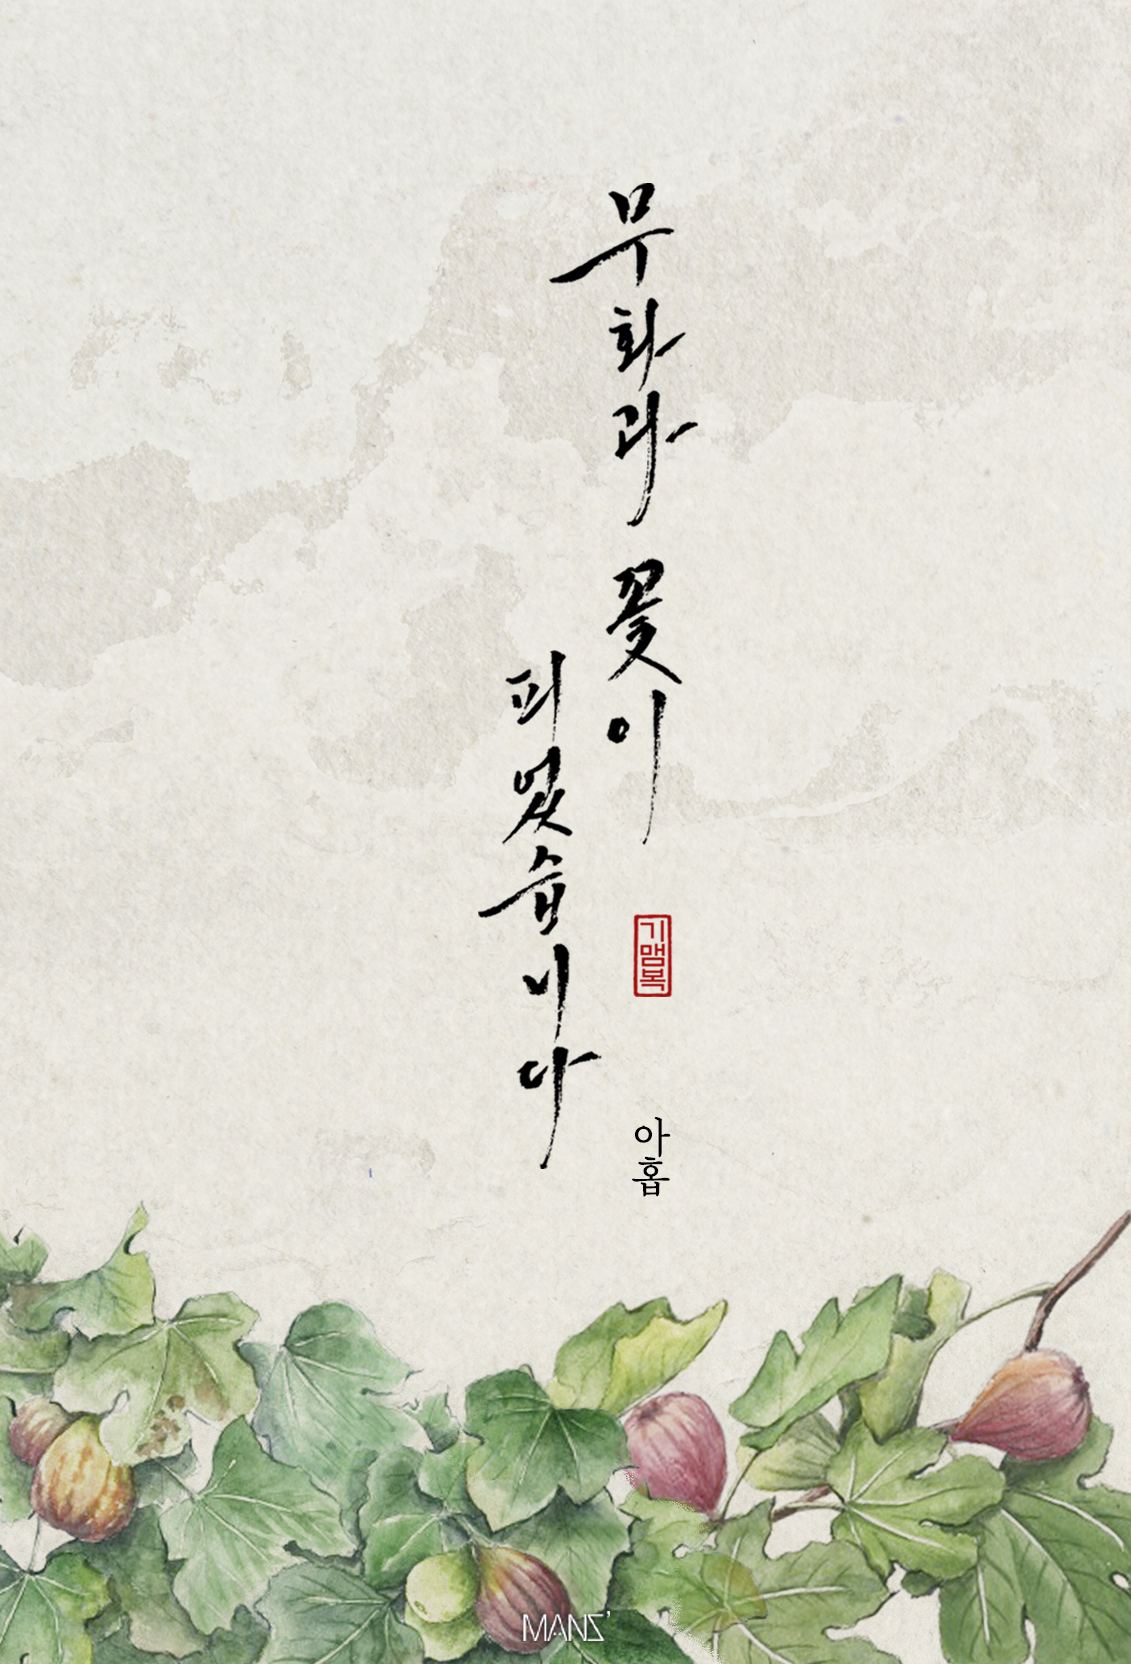 무화과 꽃이
피었습니다
기맴복
아홉
MANS'